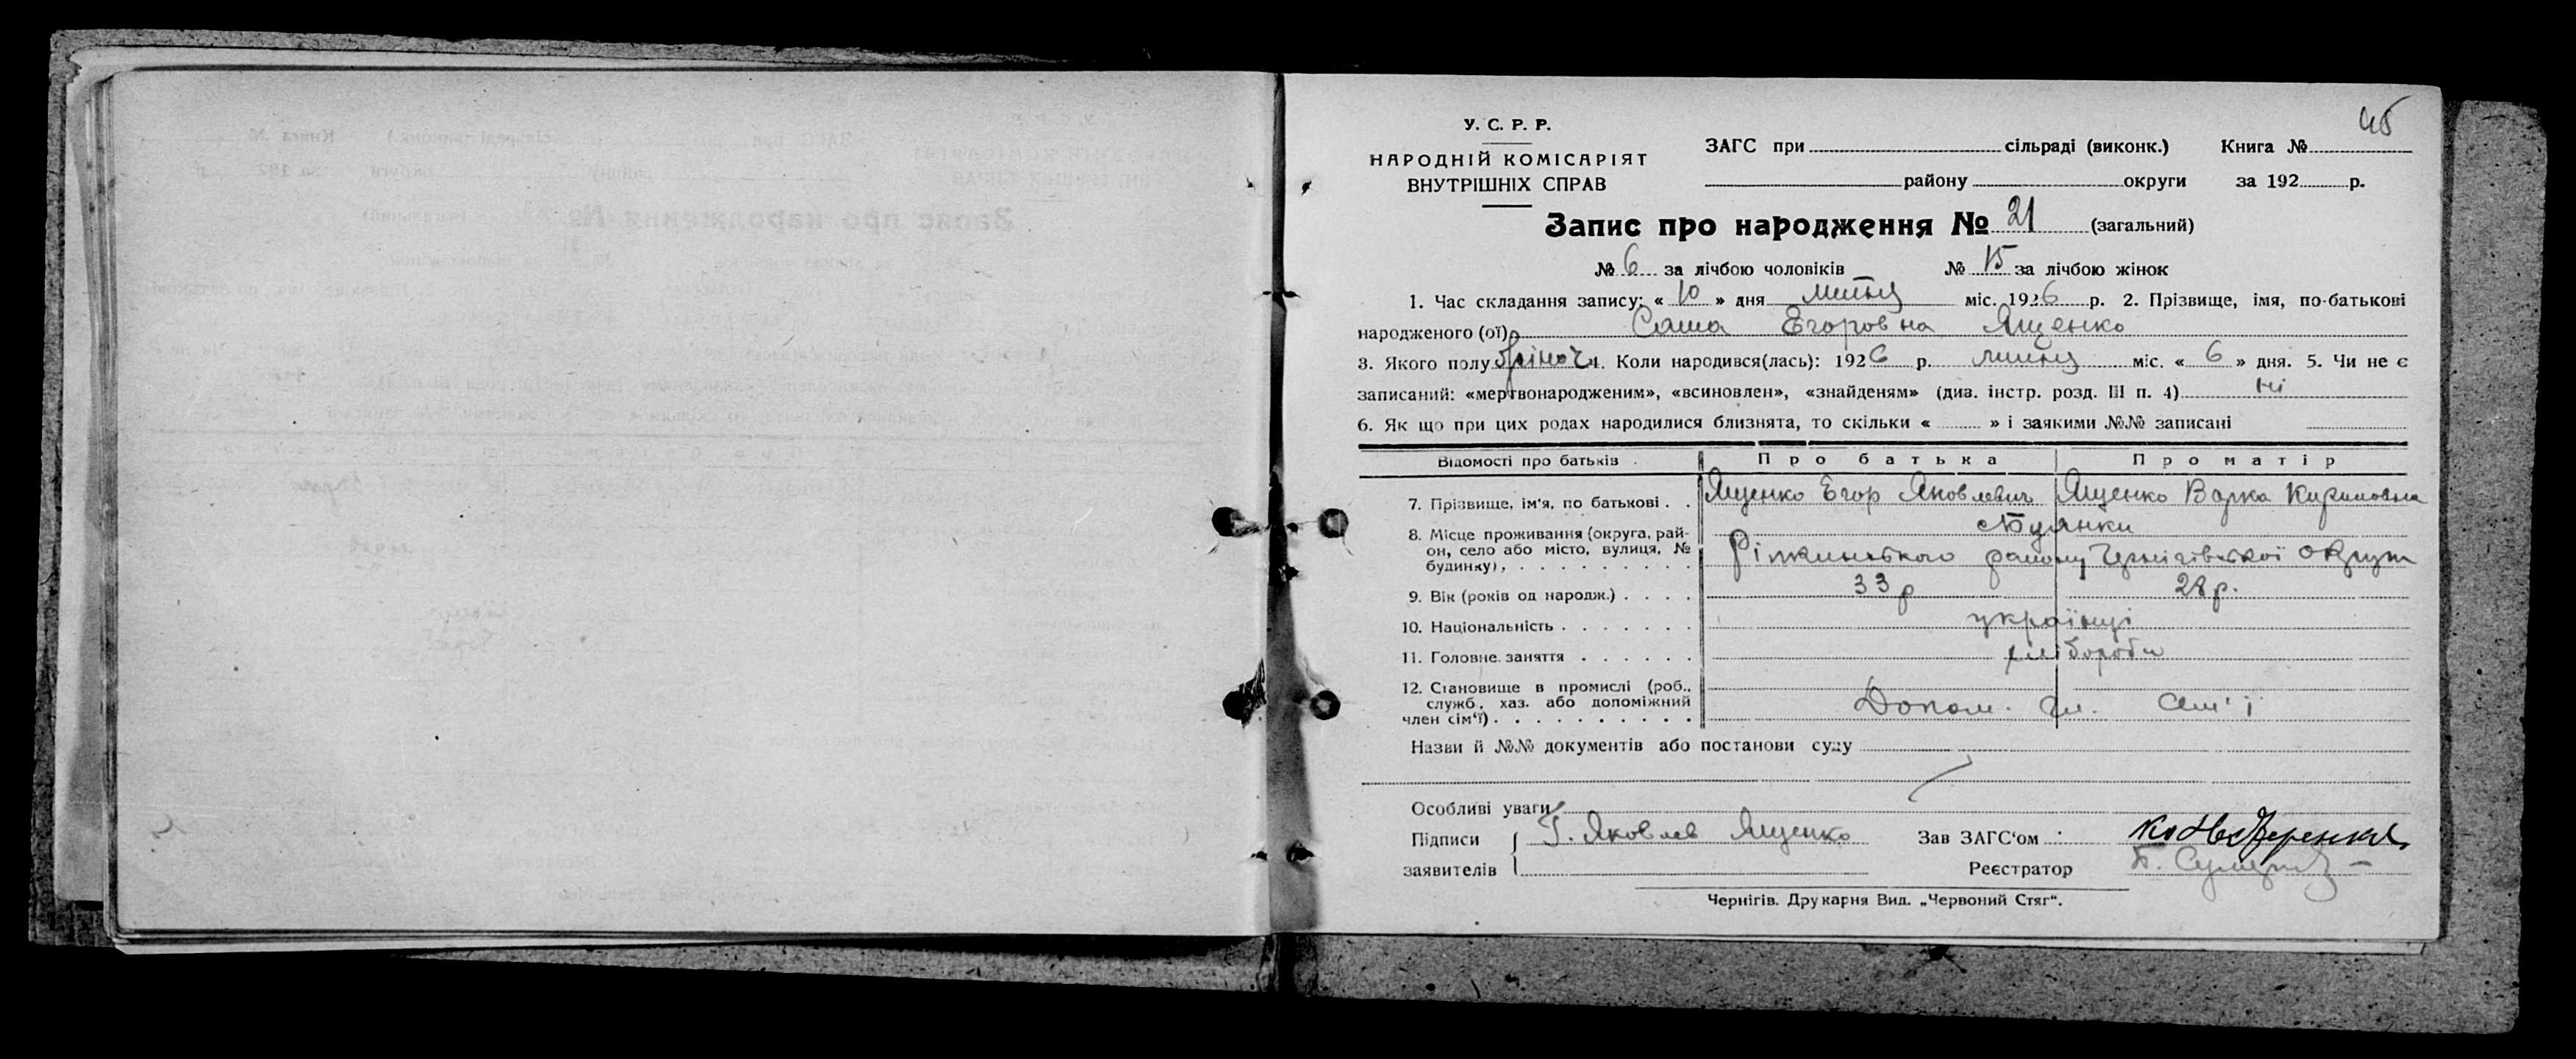 45
У. С. Р. Р.
НАРОДНІЙ КОМІСАРІЯТ
ВНУТРІШНІХ СПРАВ
ЗАГС при сільраді (виконк.) Книга №
району округи за 192 р.
Запис про народження № 21 (загальний)
№ 6 за лічбою чоловіків № 15 за лічбою жінок
1. Час складання запису: « 10 » дня липня міс. 1926 р. 2. Прізвище, імя, по-батькові
народженого (ої) Саша Егоровна Ященко
3. Якого полу жіноч 4. Коли народився(лась): 1926 р. липня міс. « 6 » дня. 5. Чи не є
записаний: «мертвонародженим», «всиновлен», «знайденям» (див. інстр. розд. III п. 4) ні
6. Як що при цих родах народилися близнята, то скільки « » і заякими №№ записані
Відомості про батьків Про батька Про матір
7. Прізвище, ім'я, по батькові . . Ященко Егор Яковлевич Ященко Варка Кириловна
8. Місце проживання (округа, рай-
он, село або місто, вулиця, №
будинку), . . . . . . . . . .
Буянки
Ріпкинського району Чернігівської округи
9. Вік (років од народж.) . . . . 33 р 28 р.
10. Національність . . . . . . . українці
11. Головне заняття . . . . . . хлібороби
12. Становище в промислі (роб.,
служб, хаз. або допоміжний
член сім'ї) . . . . . . . . . .
Допом. чл. сем'ї
Назви й №№ документів або постанови суду
Особливі уваги
Підписи Г. Яковлев Ященко Зав ЗАГС'ом :
заявителів Реєстратор
Чернігів. Друкарня Вид. „Червоний Стяг".